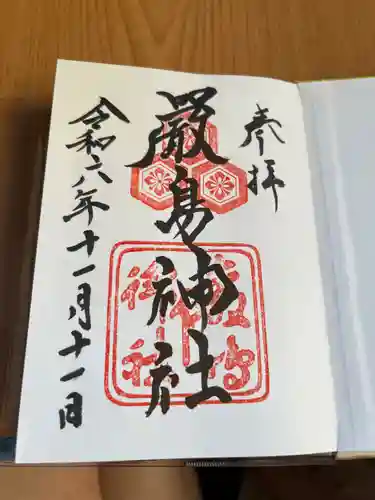 奉拝
厳島神社
令和六年十一月十一日